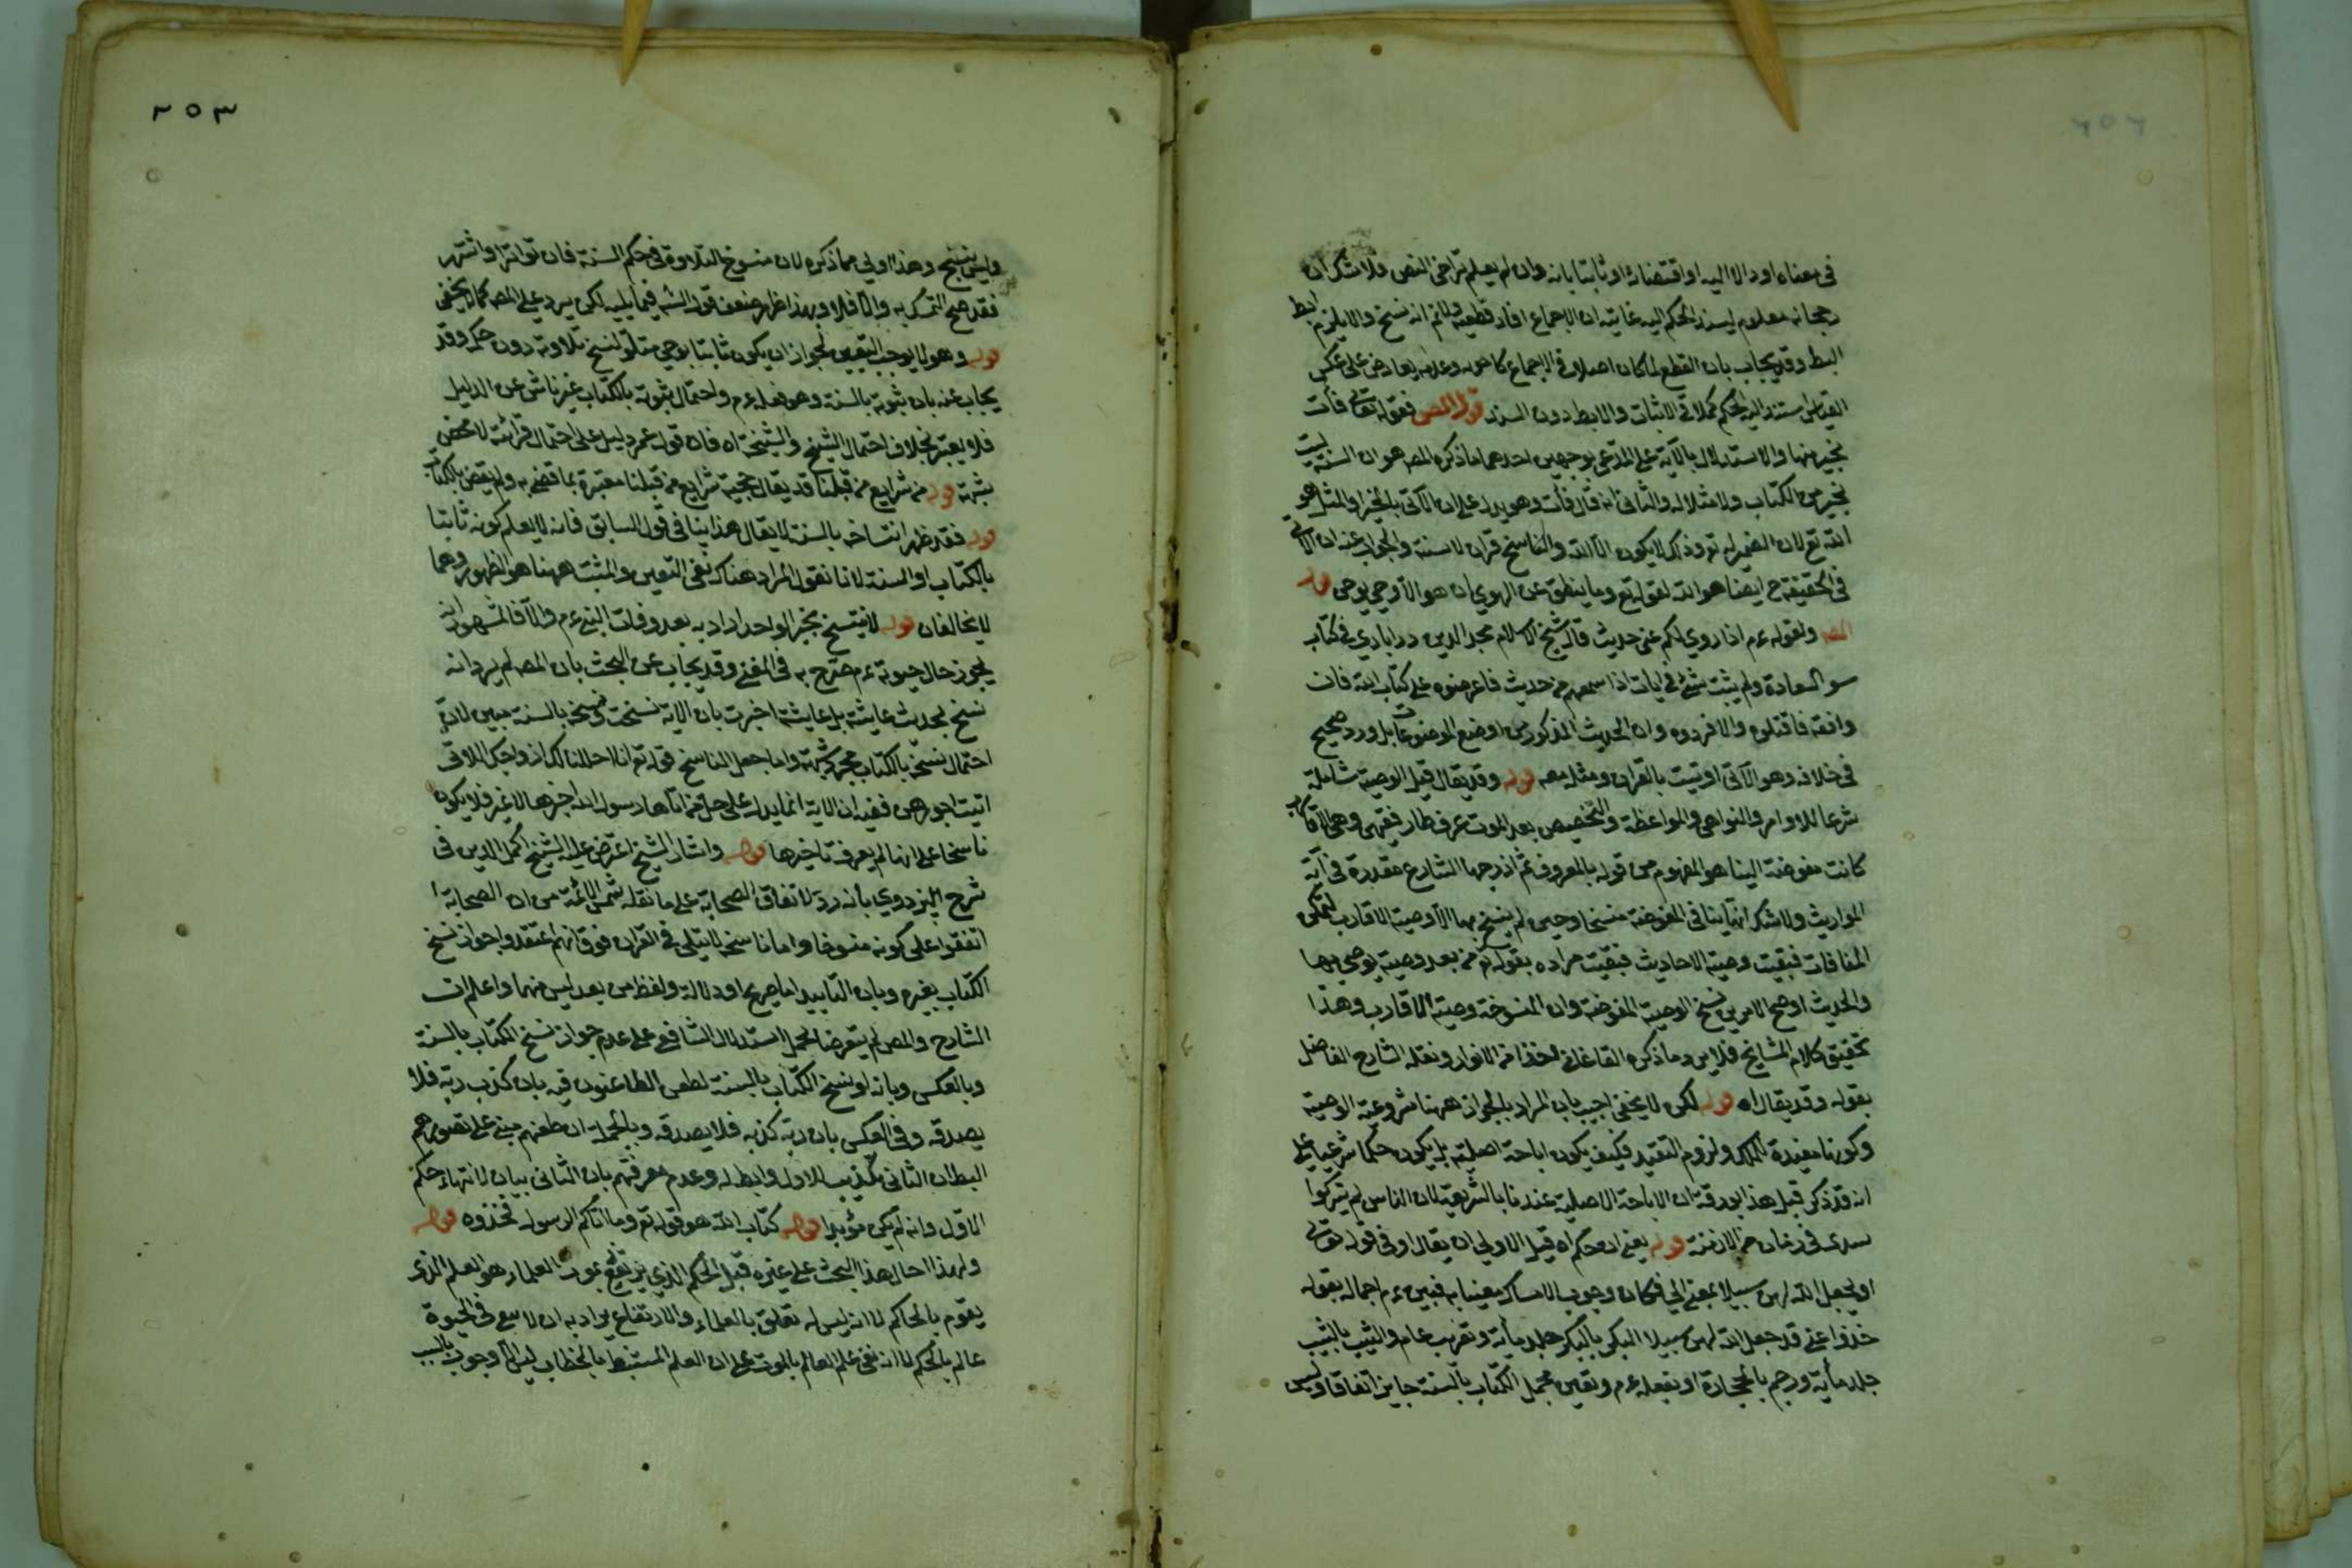 ٢٥٢
في معناه او دالا اليه او اقتضاء او ثابتا بانه وان لم يعلم تراخي النص ولا شك ان
رجحانه معلوم ليسند الحكم اليه غايته ان الاجماع افاد قطعيته ولا نم انه نسخ والا يلزم ابط
البط وقد يجاب بان القطع لما كان اصلا في الاجماع كاصوله وعدمه يعارض على عكس
القياس استند اليه الحكم كملا في الاثبات والابط دون السند قول المص فقوله تعالى نأت
بخير منها والاستدلال بالآية على المدعى بوجهين احدهما ما ذكره المص هو ان السنة ليست
بخير من الكتاب ولا مثلا له والثاني انه قال نأت وهو يدل على ان الآتي بالخير والمثل هو
الله تع لان الضمير له تع وذاك لا يكون الا الله والناسخ قران لا سنة والجواب عنه ان الآتي
في الحقيقة ح ايضا هو الله لقوله تع وما ينطق عن الهوي ان هو الا وحي يوحى قوله
المص ولقوله ءم اذا روي لكم عني حديث قال شيخ الاسلام مجد الدين درابادي في كتاب
سو السعادة ولم يثبت شئ في ايات اذا سمعتم من حديث فاعرضوه على كتاب الله فان
وافقه فاقتلوه والا فردوه وان الحديث المذكور من اوضع الموضوعات بل ورد صحيح
في خلافه وهو الآتي اوتيت بالقران ومثله معه قوله وقد يقال قيل الوصية شاملة
شرعا للاوامر والنواهي والمواعظة والتخصيص بعد الموت عرف طار فقهي وهي الاقارب
كانت مفوضة الينا هو المفهوم من قوله بالمعروف ثم اندرجها الشارع مقدرة في آية
المواريث ولا شك انها ينافي المفوضة منسخا وحين لم ينسخ بها الا وصية الاقارب لتمكن
المفاقات فبقيت وصية الاحاديث فبقيت مراده بقوله تع من بعد وصية يوصي بها
والحديث اوضح الامرين نسخ الوصية المفوضة وان المنسوخة وصية الاقارب وهذا
تحقيق كلام المشايخ فلا يرد ما ذكره القاغاني اخذا من الانوار ونقله الشارح الفاضل
بقوله وقد يقال اه قوله لكن لا يخفى اجيب بان المراد بالجواز ههنا شروعية الوصية
وكونها مفيدة للملك ولزوم التقيد فكيف يكون اباحة اصلية بل يكون حكما شرعيا على
انه قد ذكر قبل هذا بورقة ان الاباحة الاصلية عندنا بالشريعة لان الناس لم يتركوا
سدى في زمان من الازمنة قوله يعني ان حكم اه قيل الاولى ان يقال او في قوله تعالى
او يجعل الله لهن سبيلا بمعنى الى فكان وجوب الامساك مغيا به فبين ءم اجماله بقوله
خذوا عني قد جعل الله لهن سبيلا البكر بالبكر جلد مأية وتغريب عام والثيب بالثيب
جلد مأية ورجم بالحجارة او بفعله ءم وتعين مجمل الكتاب بالسنة جايز اتفاقا وليس
٢٥٣
وليس بنسخ وهذا اولى مما ذكره لان منسوخ التلاوة في حكم السنة فان تواترا واشتهر
فقد صح التمسك به والا فلا وبهذا ظهر ضعف قول الشه فيما يليه لكن يرد على المص كما لا يخفى
قوله وهو لا يوجب التعيين لجواز ان يكون ثابتا بوحي متلو نسخ تلاوته دون حكمه وقد
يجاب عنه بان ثبوته بالسنة وهو فعله ءم واحتمال ثبوته بالكتاب غير ناش عن الدليل
فلا يعتبر بخلاف احتمال الشيخ والشيخة اه فان قول عمر دليل على احتمال قرائته لا محض
شبهة قوله من شرايع من قبلنا قد يقال حجية شرايع من قبلنا مقتبرة بما قضى به ولم يقض بالكتاب
قوله فقد ظهر انتساخه بالسنة لا يقال هذا ينافي قول السابق فانه لا يعلم كونه ثابتا
بالكتاب او السنة لانا نقول المراد هناك نفي التعين والمثبت ههنا هو الظهور وهما
لا يخالفان قوله لا ينتسخ بخبر الواحد اراد به بعد وفات النبي ءم والا فالمشهور انه
يجوز حال حيوته ءم صرح به في المغني وقد يجاب عن البحث بان المص لم يرد انه
نسخ بحديث عايشة بل عايشة اخبرت بان الاية نسخت ونسخه بالسنة مبين لان
احتمال نسخه بالكتاب مجرد شبهة واما جعل الناسخ قوله تع انا احللنا لك ازواجك اللاتي
اتيت اجورهن ففيه ان الاية انما يدل على حل من اتاها رسول الله اجرها لا غير فلا يكون
ناسخا على انها لم يعرف تاخيرها قوله واشار الشيخ اعترض عليه الشيخ اكمل الدين في
شرح البزدوي بأنه رد لاتفاق الصحابة على ما نقله شمس الائمة من ان الصحابة ا
اتفقوا على كونه منسوخا واما ناسخه لا يتلى في القران فوق انهم اعتقدوا جواز نسخ
الكتاب بغيره وبان التابيد اما صريحا او دلالة ولفظ من بعد ليس منهما واعلم ان
الشارح والمص لم يتعرضا لحمل استدلال الشافعي على عدم جواز نسخ الكتاب بالسنة
وبالعكس وبانه لو نسخ الكتاب بالسنة لطعن الطاعنون فيه بان كذب ربه فلا
يصدقه وفي العكس بان ربه كذبه فلا يصدقه وبالجملة ان طعنهم مبني على تصورهم
البطلان الثاني تكذيب للاول وابط له وعدم معرفتهم بان الثاني بيان لانتهاء حكم
الاول وانه لم يكن مؤبدا قوله كتاب الله هو قوله تع وما اتاكم الرسول فخذوه قوله
ولهذا احال هذا البحث على غيره قيل الحكم الذي يرتفع بموت العلماء هو العلم الذي
يقوم بالحاكم لا انه ليس له تعلق بالعلماء والارتفاع يراد به ان لا يبقى في الحيوة
عالم بالحكم لا انه نفى علم العالم بالموت على ان العلم المستنبط بالخطاب ليس الا وجوب بالسبب